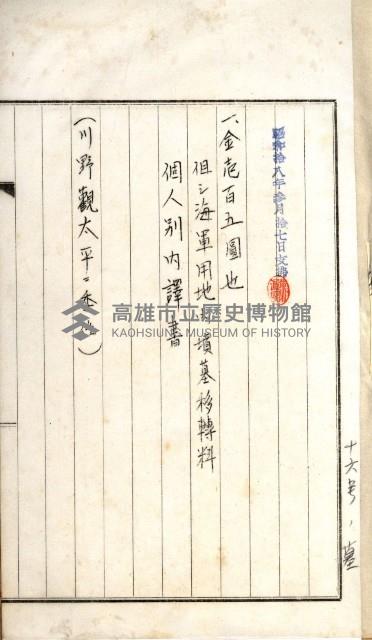 昭和拾八年參月拾七日支拂
一、金壱百五圓也
但シ海軍用地内墳墓移轉料
個人別内譯書
(川野觀太平ニ
高雄市立歷史博物館
KAOHSIUNG MUSEUM OF HISTORY
十六号ノ墓